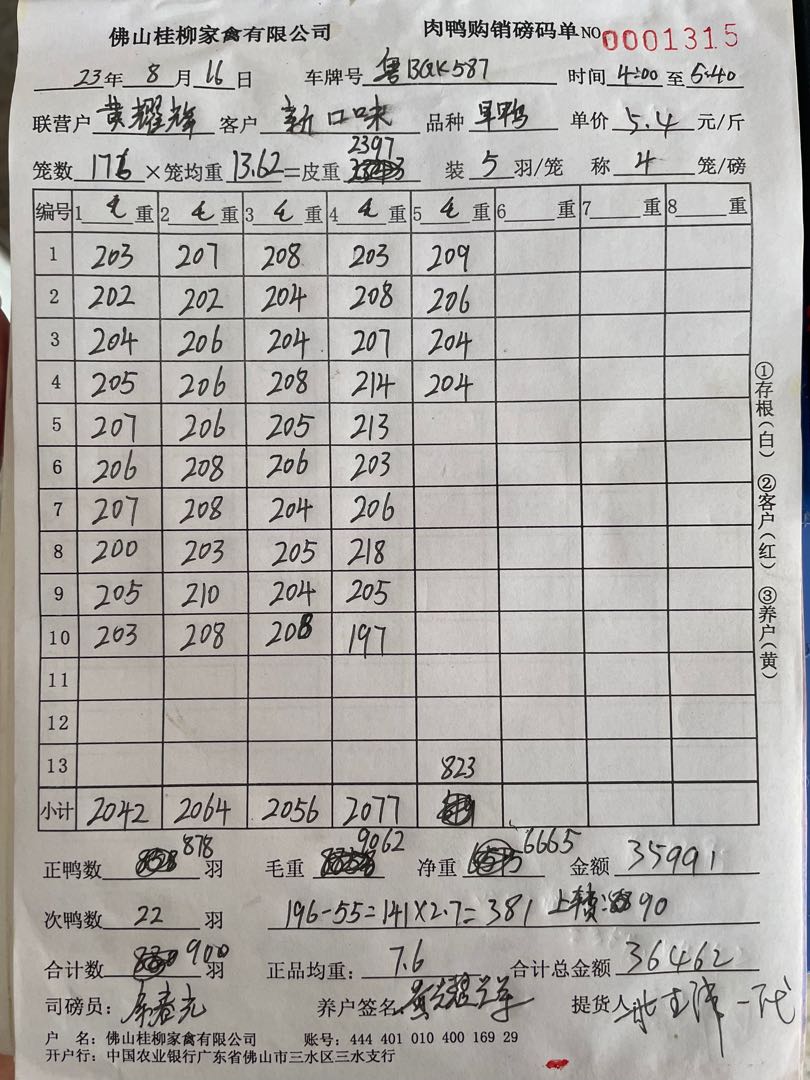 佛山桂柳家禽有限公司 肉鸭购销磅码单 NO 0001315
23年 8月 16日 车牌号 粤BGK587 时间 4:00 至 5:40
联营户 黄耀辉 客户 新口味 品种 旱鸭 单价 5.4 元/斤
2397
笼数 176 ×笼均重 13.62 =皮重 装 5 羽/笼 称 4 笼/磅
编号 1 毛 重 2 毛 重 3 毛 重 4 毛 重 5 毛 重 6 重 7 重 8 重
1 203 207 208 203 209
2 202 202 204 208 206
3 204 206 204 207 204
4 205 206 208 214 204
5 207 206 205 213
6 206 208 206 203
7 207 208 204 206
8 200 203 205 218
9 205 210 204 205
10 203 208 208 197
11
12
13 823
小计 2042 2064 2056 2077
正鸭数 878 羽 毛重 9062 净重 6665 金额 35991
次鸭数 22 羽 196-55=141×2.7=381 上车费: 90
合计数 900 羽 正品均重: 7.6 合计总金额 36462
司磅员: 养户签名: 黄耀辉 提货人:
户 名: 佛山桂柳家禽有限公司 账号: 444 401 010 400 169 29
开户行: 中国农业银行广东省佛山市三水区三水支行
①存根(白) ②客户(红) ③养户(黄)